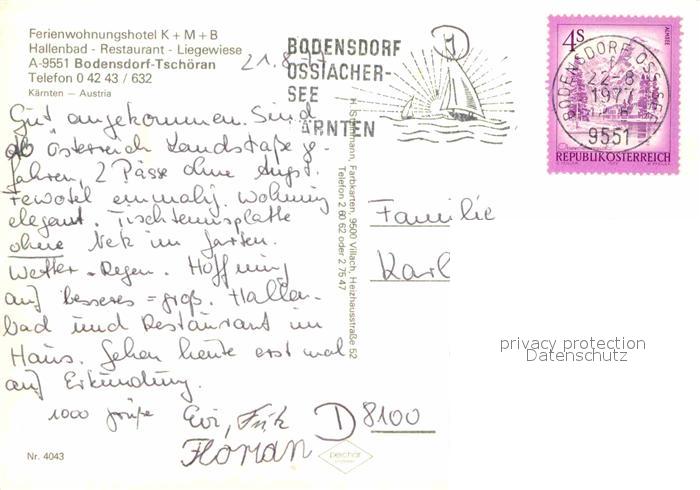 Ferienwohnungshotel K + M + B
Hallenbad - Restaurant - Liegewiese
A-9551 Bodensdorf-Tschöran
Telefon 0 42 43 / 632
Kärnten — Austria
21.8.77
Gut angekommen. Sind
ab Österreich Landstraße ge-
fahren, 2 Pässe ohne Angst.
Fewotel einmalig. Wohnung
elegant. Tischtennisplatte
ohne Netz im Garten.
Wetter = Regen. Hoffnung
auf besseres = groß. Hallen-
bad und Restaurant im
Haus. Gehen heute erst mal
auf Erkundung.
1000 Grüße Evi, Fritz
Florian
Nr. 4043
H. Schiffmann, Farbkarten, 9500 Villach, Heizhausstraße 52
Telefon 2 60 62 oder 2 75 47
BODENSDORF
OSSIACHER-
SEE
KÄRNTEN
4S
BODENSDORF OSS. SEE
22-8
1977
9551
REPUBLIK ÖSTERREICH
Familie
Karl
privacy protection
Datenschutz
D 8100